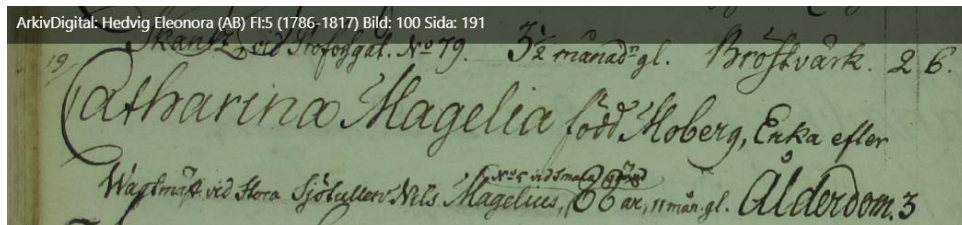 ArkivDigital: Hedvig Eleonora (AB) FI:5 (1786-1817) Bild: 100 Sida: 191
vid No 79. 3 1/2 månad gl. Bröstvärk. 2 6.
19
Catharina Magelia född Moberg, Enka efter
No 5 vid Smala
Wagtmäst vid Stora Sjötullen Nils Magelius, 66 år, 11 mån. gl. Ålderdom. 3